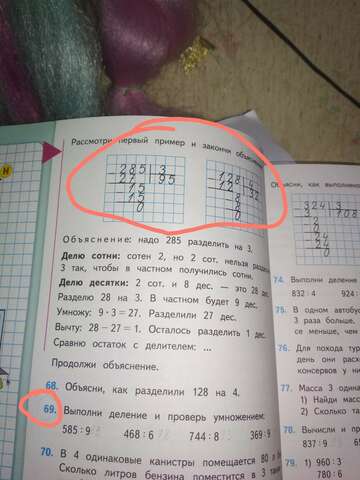 Рассмотри первый пример и закончи
285 3
27 95
15
15
0
128 4
12 32
8
8
0
Объяснение: надо 285 разделить на 3.
Делю сотни: сотен 2, но 2 сот. нельзя
3 так, чтобы в частном получились сотни.
Делю десятки: 2 сот. и 8 дес. — это 28 дес.
Разделю 28 на 3. В частном будет 9 дес.
Умножу: 9·3=27. Разделили 27 дес.
Вычту: 28−27=1. Осталось разделить 1 дес.
Сравню остаток с делителем: ...
Продолжи объяснение.
68. Объясни, как разделили 128 на 4.
69. Выполни деление и проверь умножением:
585:9 468:6 744:8 369:9
70. В 4 одинаковые канистры помещается 80 л
Сколько литров бензина поместится в 3
Н
как выполне
324 3
3 108
2
0
24
24
0
74. Выполни деление
832:4 924:
75. В одном автобус
3 раза больше,
се меньше, чем
76. Для похода тур
день они расх
консервов у ни
77. Масса 3 одина
1) Найди масс
2) Сколько та
78. Вычисли и пр
837:9
79. 1) 960:3
780:6